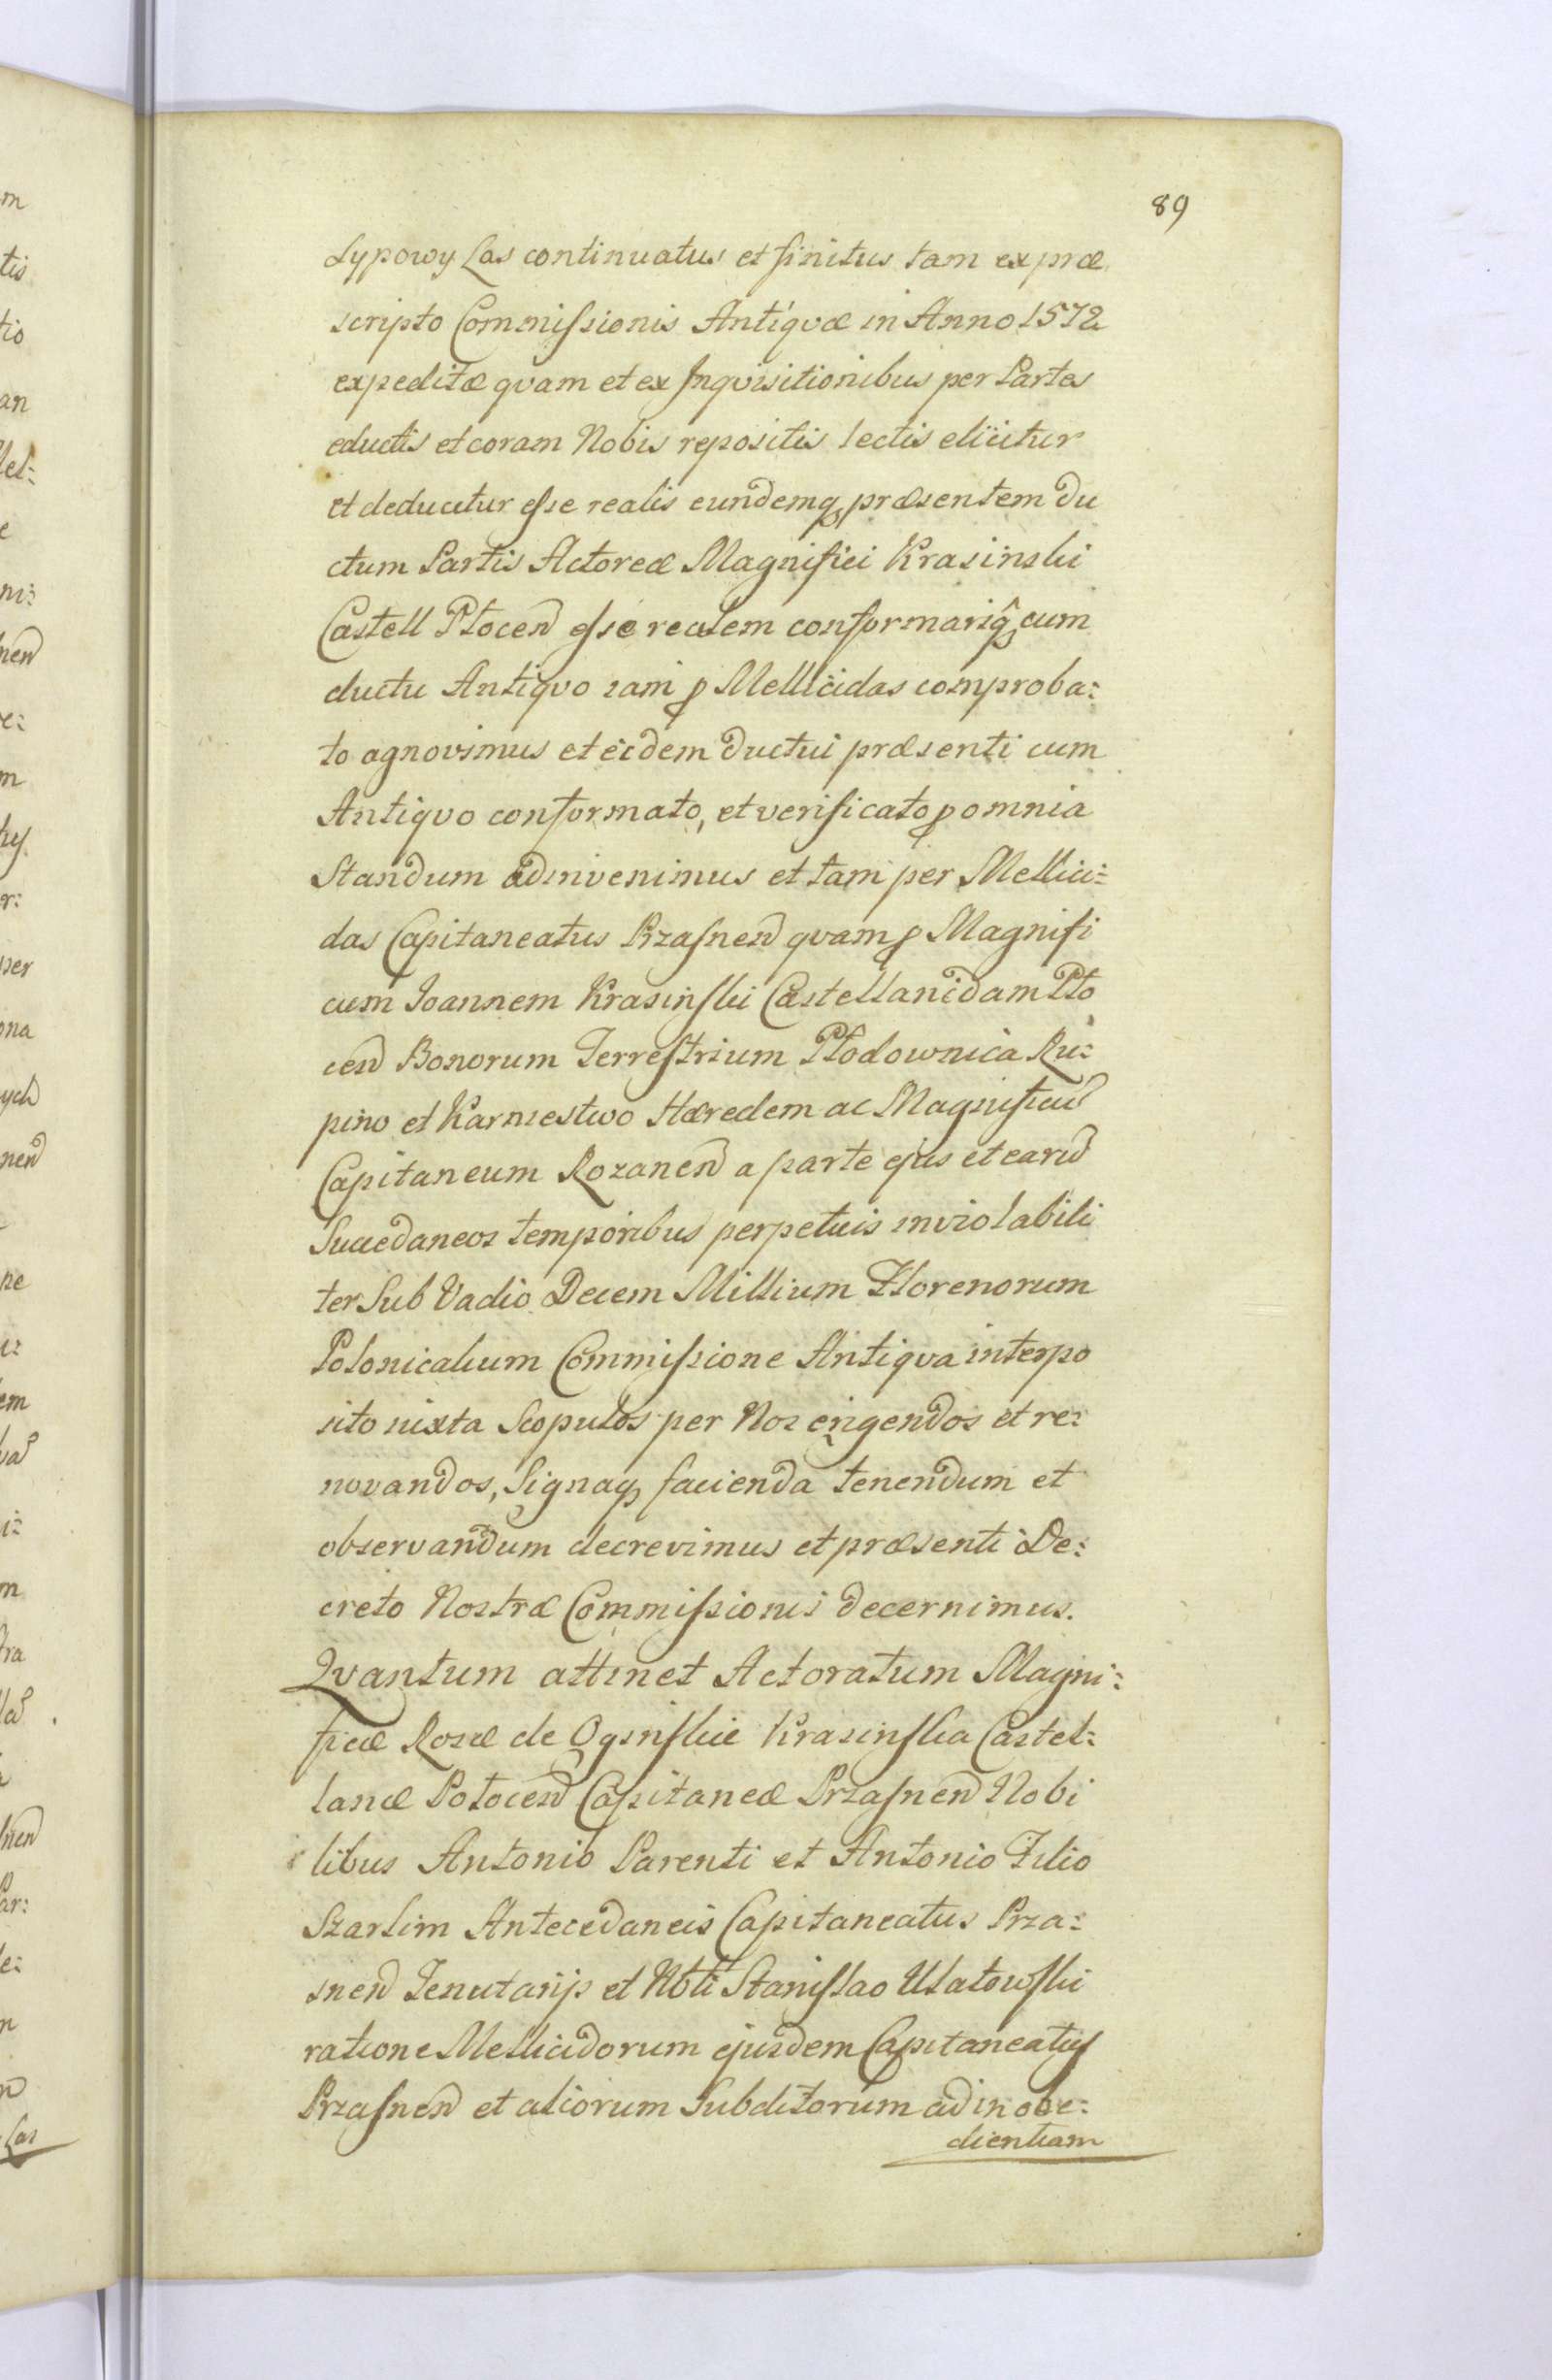 89
Lypowy Las continuatus et finitus tam ex præ
scripto Commissionis Antiqvæ in Anno 1572
expeditæ qvam et ex Inqvisitionibus per Partes
eductis et coram Nobis repositis lectis eliicitur
et deducitur esse realis eundemq præsentem Du
ctum Partis Actoreæ Magnifici Krasinski
Castell Płocen esse realem conformariq cum
ductu Antiqvo iam p Mellicidas comproba:
to agnovimus et eidem Ductui præsenti cum
Antiqvo conformato, et verificato p omnia
Standum adinvenimus et tam per Mellici:
das Capitaneatus Przasnen qvam p Magnifi
cum Ioannem Krasinski Castellanidam Pło
cen Bonorum Terrestrium Płodownica Ru:
pino et Karniestwo Hæredem ac Magnificū
Capitaneum Rozanen a parte ejus et earū
Succedaneos temporibus perpetuis inviolabili
ter Sub Vadio Decem Millium Florenorum
Polonicalium Commissione Antiqva interpo
sito iuxta Scopulos per Nos erigendos et re:
novandos, Signaq facienda tenendum et
observandum decrevimus et præsenti De:
creto Nostræ Commissionis decernimus.
Qvantum attinet Actoratum Magni:
ficæ Rosæ de Oginskie Krasinska Castel:
lanæ Potocen Capitaneæ Przasnen Nobi
libus Antonio Parenti et Antonio Filio
Szarlim Antecedaneis Capitaneatus Prza:
snen Tenutarijs et Nbli Stanislao Ulatowski
ratione Mellicidorum ejusdem Capitaneatus
Przasnen et aliorum Subditorum ad inobe:
dientiam
m
tis
tio
an
e
m
per
ona
ych
nen
ne
em
m
tra
nen
n
Las